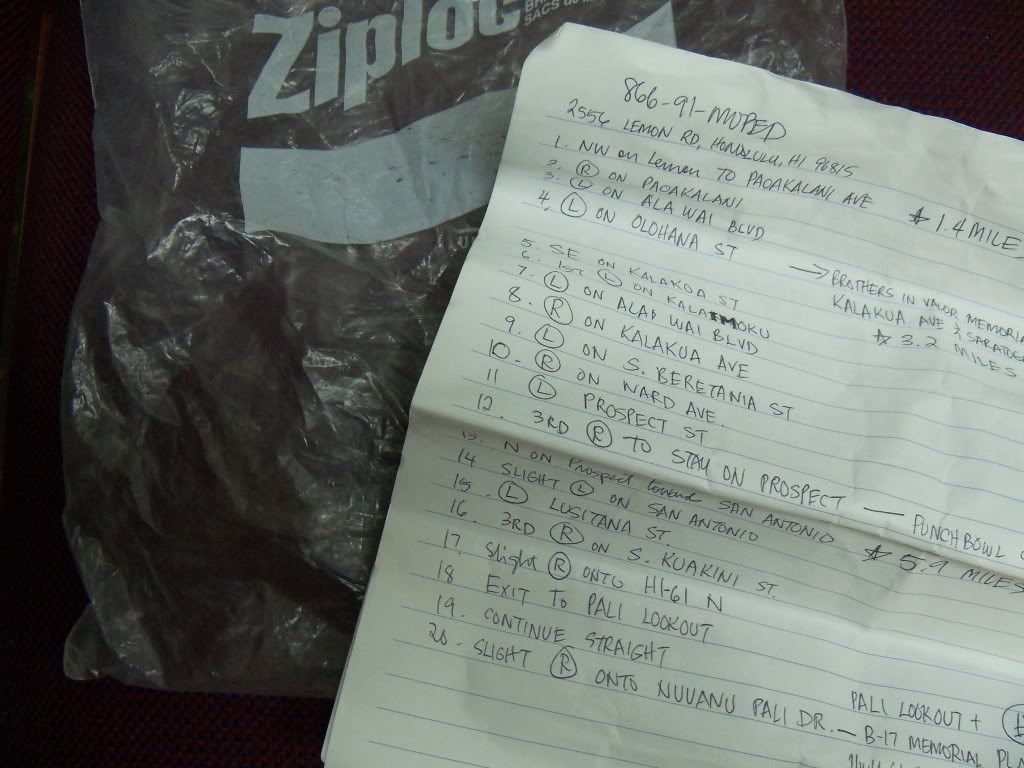 Ziploc
SACS
866-91-MOPED
2556 LEMON RD, HONOLULU, HI 96815
1. NW on Lemon TO PAOAKALANI AVE
2. R ON PAOAKALANI
3. L ON ALA WAI BLVD
* 1.4 MILE
4. L ON OLOHANA ST
→ BROTHERS IN VALOR MEMORIA
KALAKUA AVE & SARATOG
* 3.2 MILES
5. SE ON KALAKOA ST
6. 1ST L ON KALAIMOKU
7. L ON ALA WAI BLVD
8. R ON KALAKUA AVE
9. L ON S. BERETANIA ST
10. R ON WARD AVE.
11 L PROSPECT ST
12. 3RD R TO STAY ON PROSPECT — PUNCHBOWL
13. N ON Prospect towards SAN ANTONIO
14 SLIGHT L ON SAN ANTONIO
* 5.9 MILES
15. L LUSITANA ST
16. 3RD R ON S. KUAKINI ST.
17. Slight R ONTO HI-61 N
18 EXIT TO PALI LOOKOUT
19. CONTINUE STRAIGHT
20. SLIGHT R ONTO NUUANU PALI DR. — B-17 MEMORIAL PLA
PALI LOOKOUT +